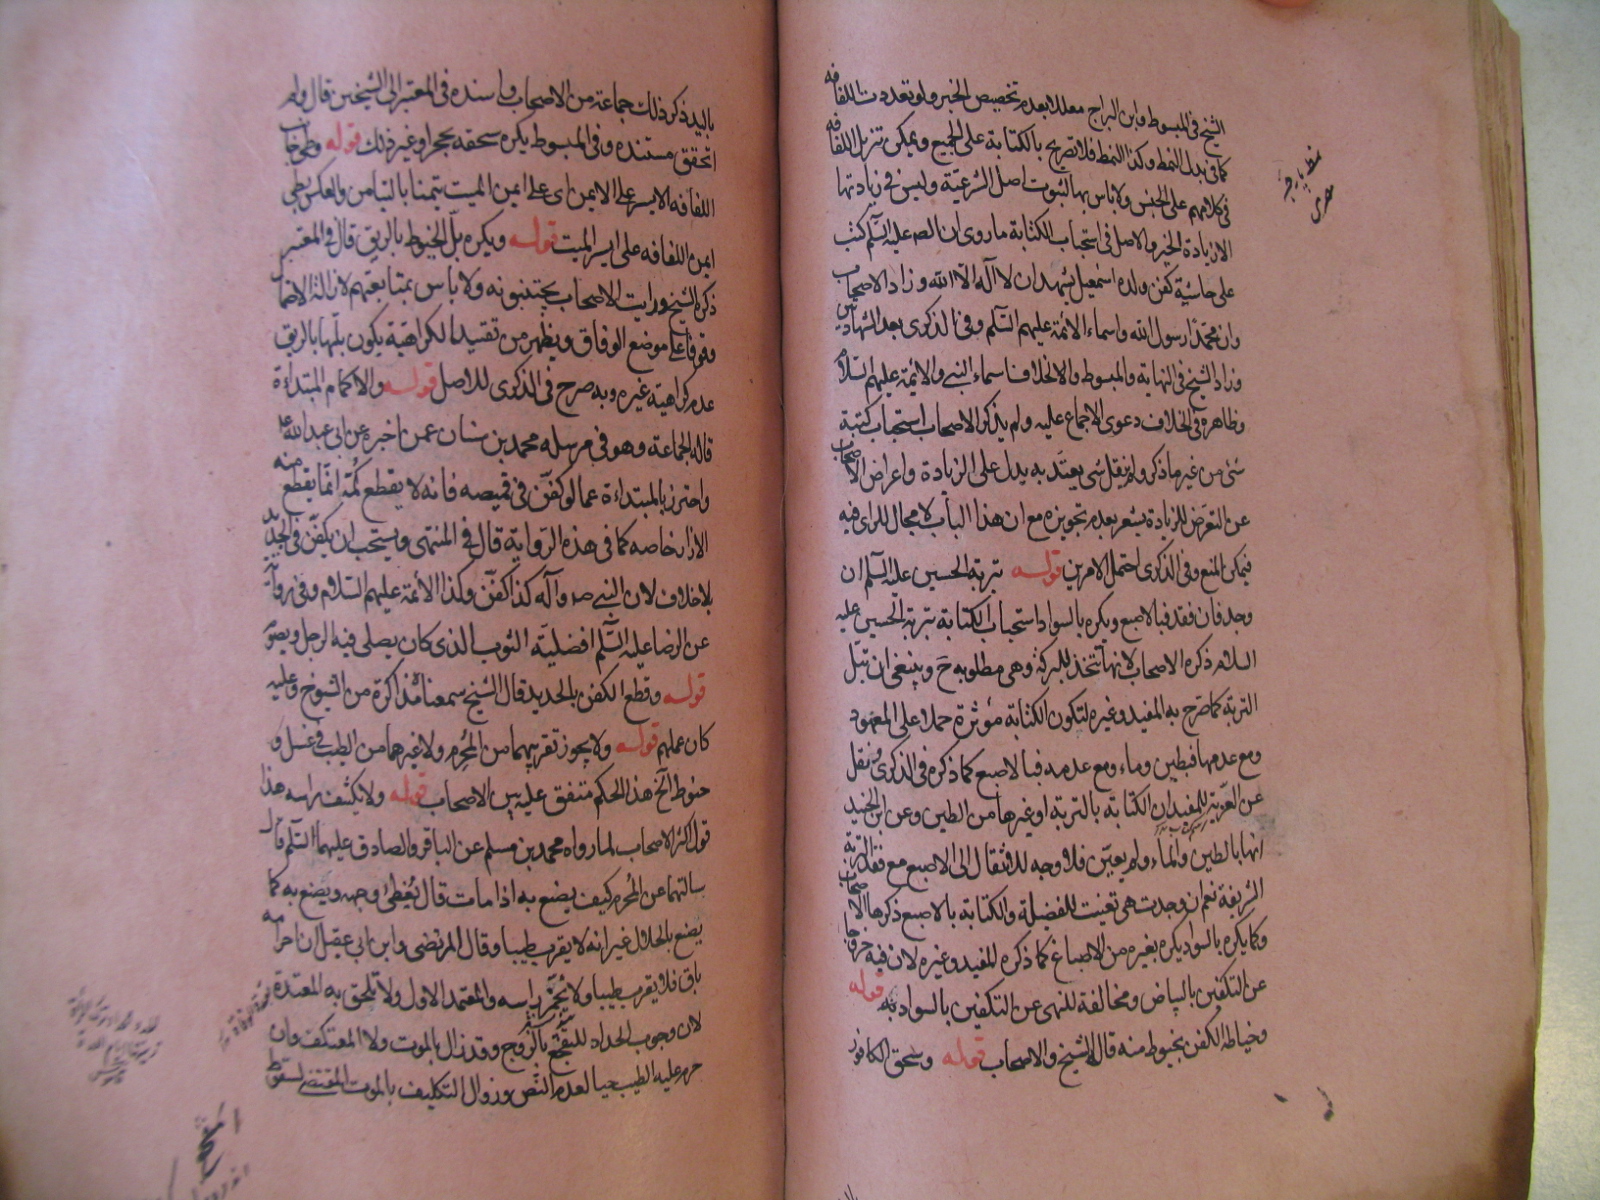 الشيخ فى المبسوط وابن البراج معللا بعدم تخصيص الخبر ولو تعددت اللفافه
كما فى بدل النمط وكذا النمط فلا تصريح بالكتابة على الجميع ويمكن تنزيل اللفافه
فى كلامهم على الجنس ولا باس بها لثبوت اصل الشرعية وليس فى زيادتها
الا زيادة الخير والاصل فى استحباب الكتابة ما روى ان الص عليه السلم كتب
على حاشية كفن ولده اسمعيل يشهد ان لا اله الا الله وزاد الاصحاب
وان محمدا رسول الله واسماء الائمة عليهم السلم وفى الذكرى بعد الشهادتين
وزاد الشيخ فى النهاية والمبسوط والخلاف اسماء النبى والائمة عليهم السلام
وظاهره فى الخلاف دعوى الاجماع عليه ولم يذكر الاصحاب استحباب كتبة
شئ من غير ما ذكر ولم ينقل شئ يعتد به يدل على الزيادة واعراض الاصحاب
عن التعرض للزيادة يشعر بعدم تجويزه مع ان هذا الباب لا مجال للراى فيه
فيمكن المنع وفى الذكرى احتمل الامرين قوله بتربة الحسين عليه السلم ان
وجد فان فقد فبالاصبع ويكره بالسواد استحباب الكتابة بتربة الحسين عليه
السلام ذكره الاصحاب لانها تتخذ للبركة وهى مطلوبه ح وينبغى ان تبل
التربة كما صرح به المفيد وغيره لتكون الكتابة مؤثرة حملا على المعهود
ومع عدمها فبطين وماء ومع عدمه فبالاصبع كما ذكره فى الذكرى ونقل
عن العزية للمفيد ان الكتابة بالتربة او غيرها من الطين وعن ابن الجنيد
انها بالطين والماء ولم يعين فلا وجه للانتقال الى الاصبع مع فقد التربة
الشريفة نعم ان وجدت هى تعينت للفضيلة والكتابة بالاصبع ذكرها الاصحاب
وكما يكره بالسواد يكره بغيره من الاصباغ كما ذكره المفيد وغيره لان فيه خروجا
عن التكفين بالبياض ومخالفة للنهى عن التكفين بالسواد به قوله
وخياطة الكفن بخيوط منه قاله الشيخ والاصحاب قوله وسحق الكافور
باليد ذكر ذلك جماعة من الاصحاب واسنده فى المعتبر الى الشيخين قال ولم
اتحقق مستنده وفى المبسوط يكره سحقه بحجر او غير ذلك قوله وطى جانب
اللفافه الايسر على الايمن اى على ايمن الميت تيمنا بالتيامن والعكس بطى
ايمن اللفافه على ايسر الميت قوله ويكره بل الخيوط بالريق قال فى المعتبر
ذكره الشيخ ورايت الاصحاب يجتنبونه ولا باس بمتابعتهم لازالة الاحتمال
ووقوفا على موضع الوفاق ويظهر من تقييد الكراهية بكون بلها بالريق
عدم كراهية غيره وبه صرح فى الذكرى للاصل قوله والاكمام المبتداءة
قاله الجماعة وهو فى مرسله محمد بن سنان عمن اخبره عن ابى عبد الله ع
واحترز بالمبتداءة عما لو كفن فى قميصه فانه لا يقطع كمه انما يقطع منه
الازرار خاصه كما فى هذه الرواية قال فى المنتهى ويستحب ان يكفن فى الجديد
بلا خلاف لان النبى ص وآله كذا كفن وكذا الائمة عليهم السلام وفى رواية
عن الرضا عليه السلم افضلية الثوب الذى كان يصلى فيه الرجل ويصوم
قوله وقطع الكفن بالحديد قال الشيخ سمعناه مذاكرة من الشيوخ وعليه
كان عملهم قوله ولا يجوز تقريبهما من المحرم ولا غيرهما من الطيب فى غسل و
حنوط الخ هذا الحكم متفق عليه بين الاصحاب قوله ولا يكشف راسه هذا
قول اكثر الاصحاب لما رواه محمد بن مسلم عن الباقر والصادق عليهما السلم قال
سالتهما عن المحرم كيف يصنع به اذا مات قال يغطى وجهه ويصنع به كما
يصنع بالحلال غير انه لا يقرب طيبا وقال المرتضى وابن ابى عقيل ان احرامه
باق فلا يقرب طيبا ولا يخمر راسه والمعتمد الاول ولا تلحق به المعتدة
لان وجوب الحداد للتفجع بالزوج وقد زال بالموت ولا المعتكف وان
حرم عليه الطيب حيا لعدم النص وزوال التكليف بالموت المقتضى لسقوط